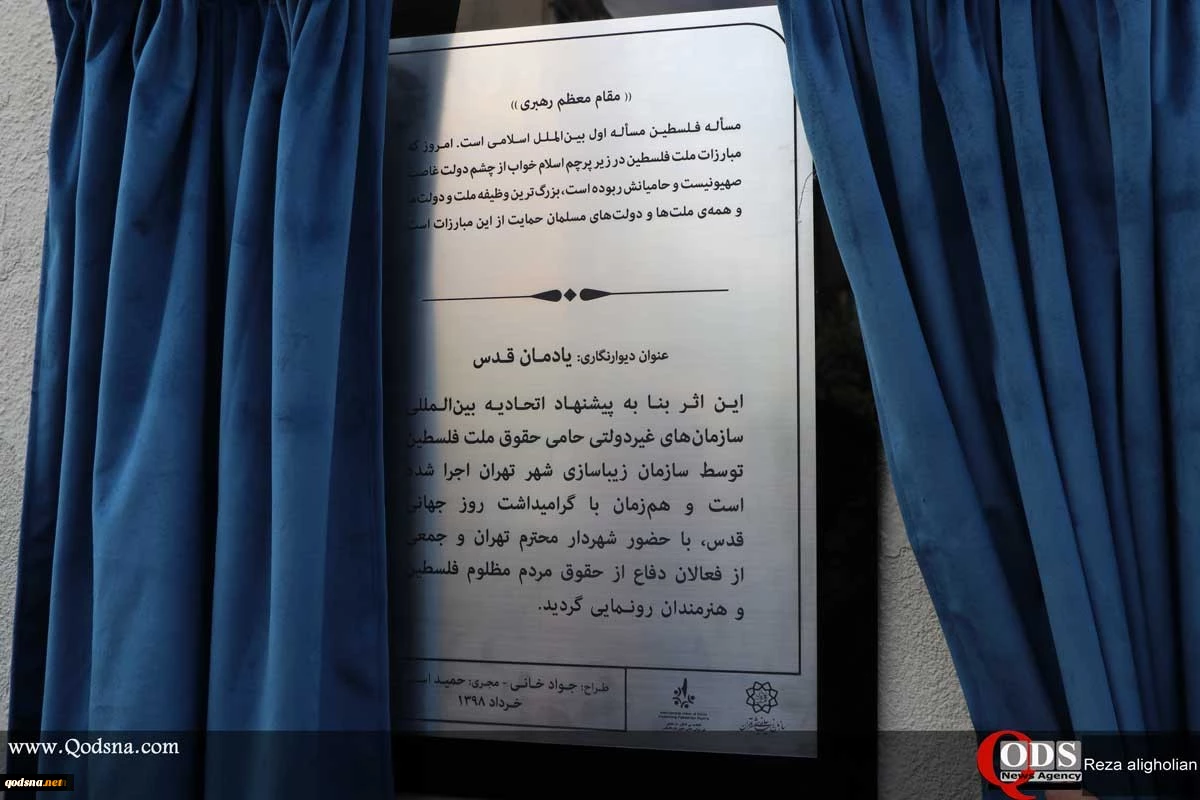 (( مقام معظم رهبری ))
مسأله فلسطین مسأله اول بین‌الملل اسلامی است. امروز که
مبارزات ملت فلسطین در زیر پرچم اسلام خواب از چشم دولت غاصب
صهیونیست و حامیانش ربوده است، بزرگ‌ترین وظیفه ملت و دولت ما
و همه‌ی ملت‌ها و دولت‌های مسلمان حمایت از این مبارزات است
عنوان دیوارنگاری: یادمان قدس
این اثر بنا به پیشنهاد اتحادیه بین‌المللی
سازمان‌های غیردولتی حامی حقوق ملت فلسطین
توسط سازمان زیباسازی شهر تهران اجرا شده
است و هم‌زمان با گرامیداشت روز جهانی
قدس، با حضور شهردار محترم تهران و جمعی
از فعالان دفاع از حقوق مردم مظلوم فلسطین
و هنرمندان رونمایی گردید.
طراح: جواد خانی - مجری: حمید
خرداد ۱۳۹۸
www.Qodsna.com
qodsna.net
QODS
News Agency
Reza aligholian